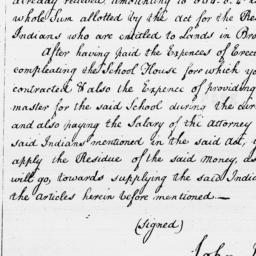 already received, amounting to
whole Sum allotted by the act for the Be
Indians who are entitled to Lands in Bro
After having paid the Expences of Erec
compleating the School House for which yo
contracted & also the Expence of providing
master for the said School during the cur
and also paying the Salary of the Attorney
said Indians mentioned in the said act, y
apply the Residue of the said money, as
will go, towards supplying the said Indi
the articles herein before mentioned—
(Signed)
John